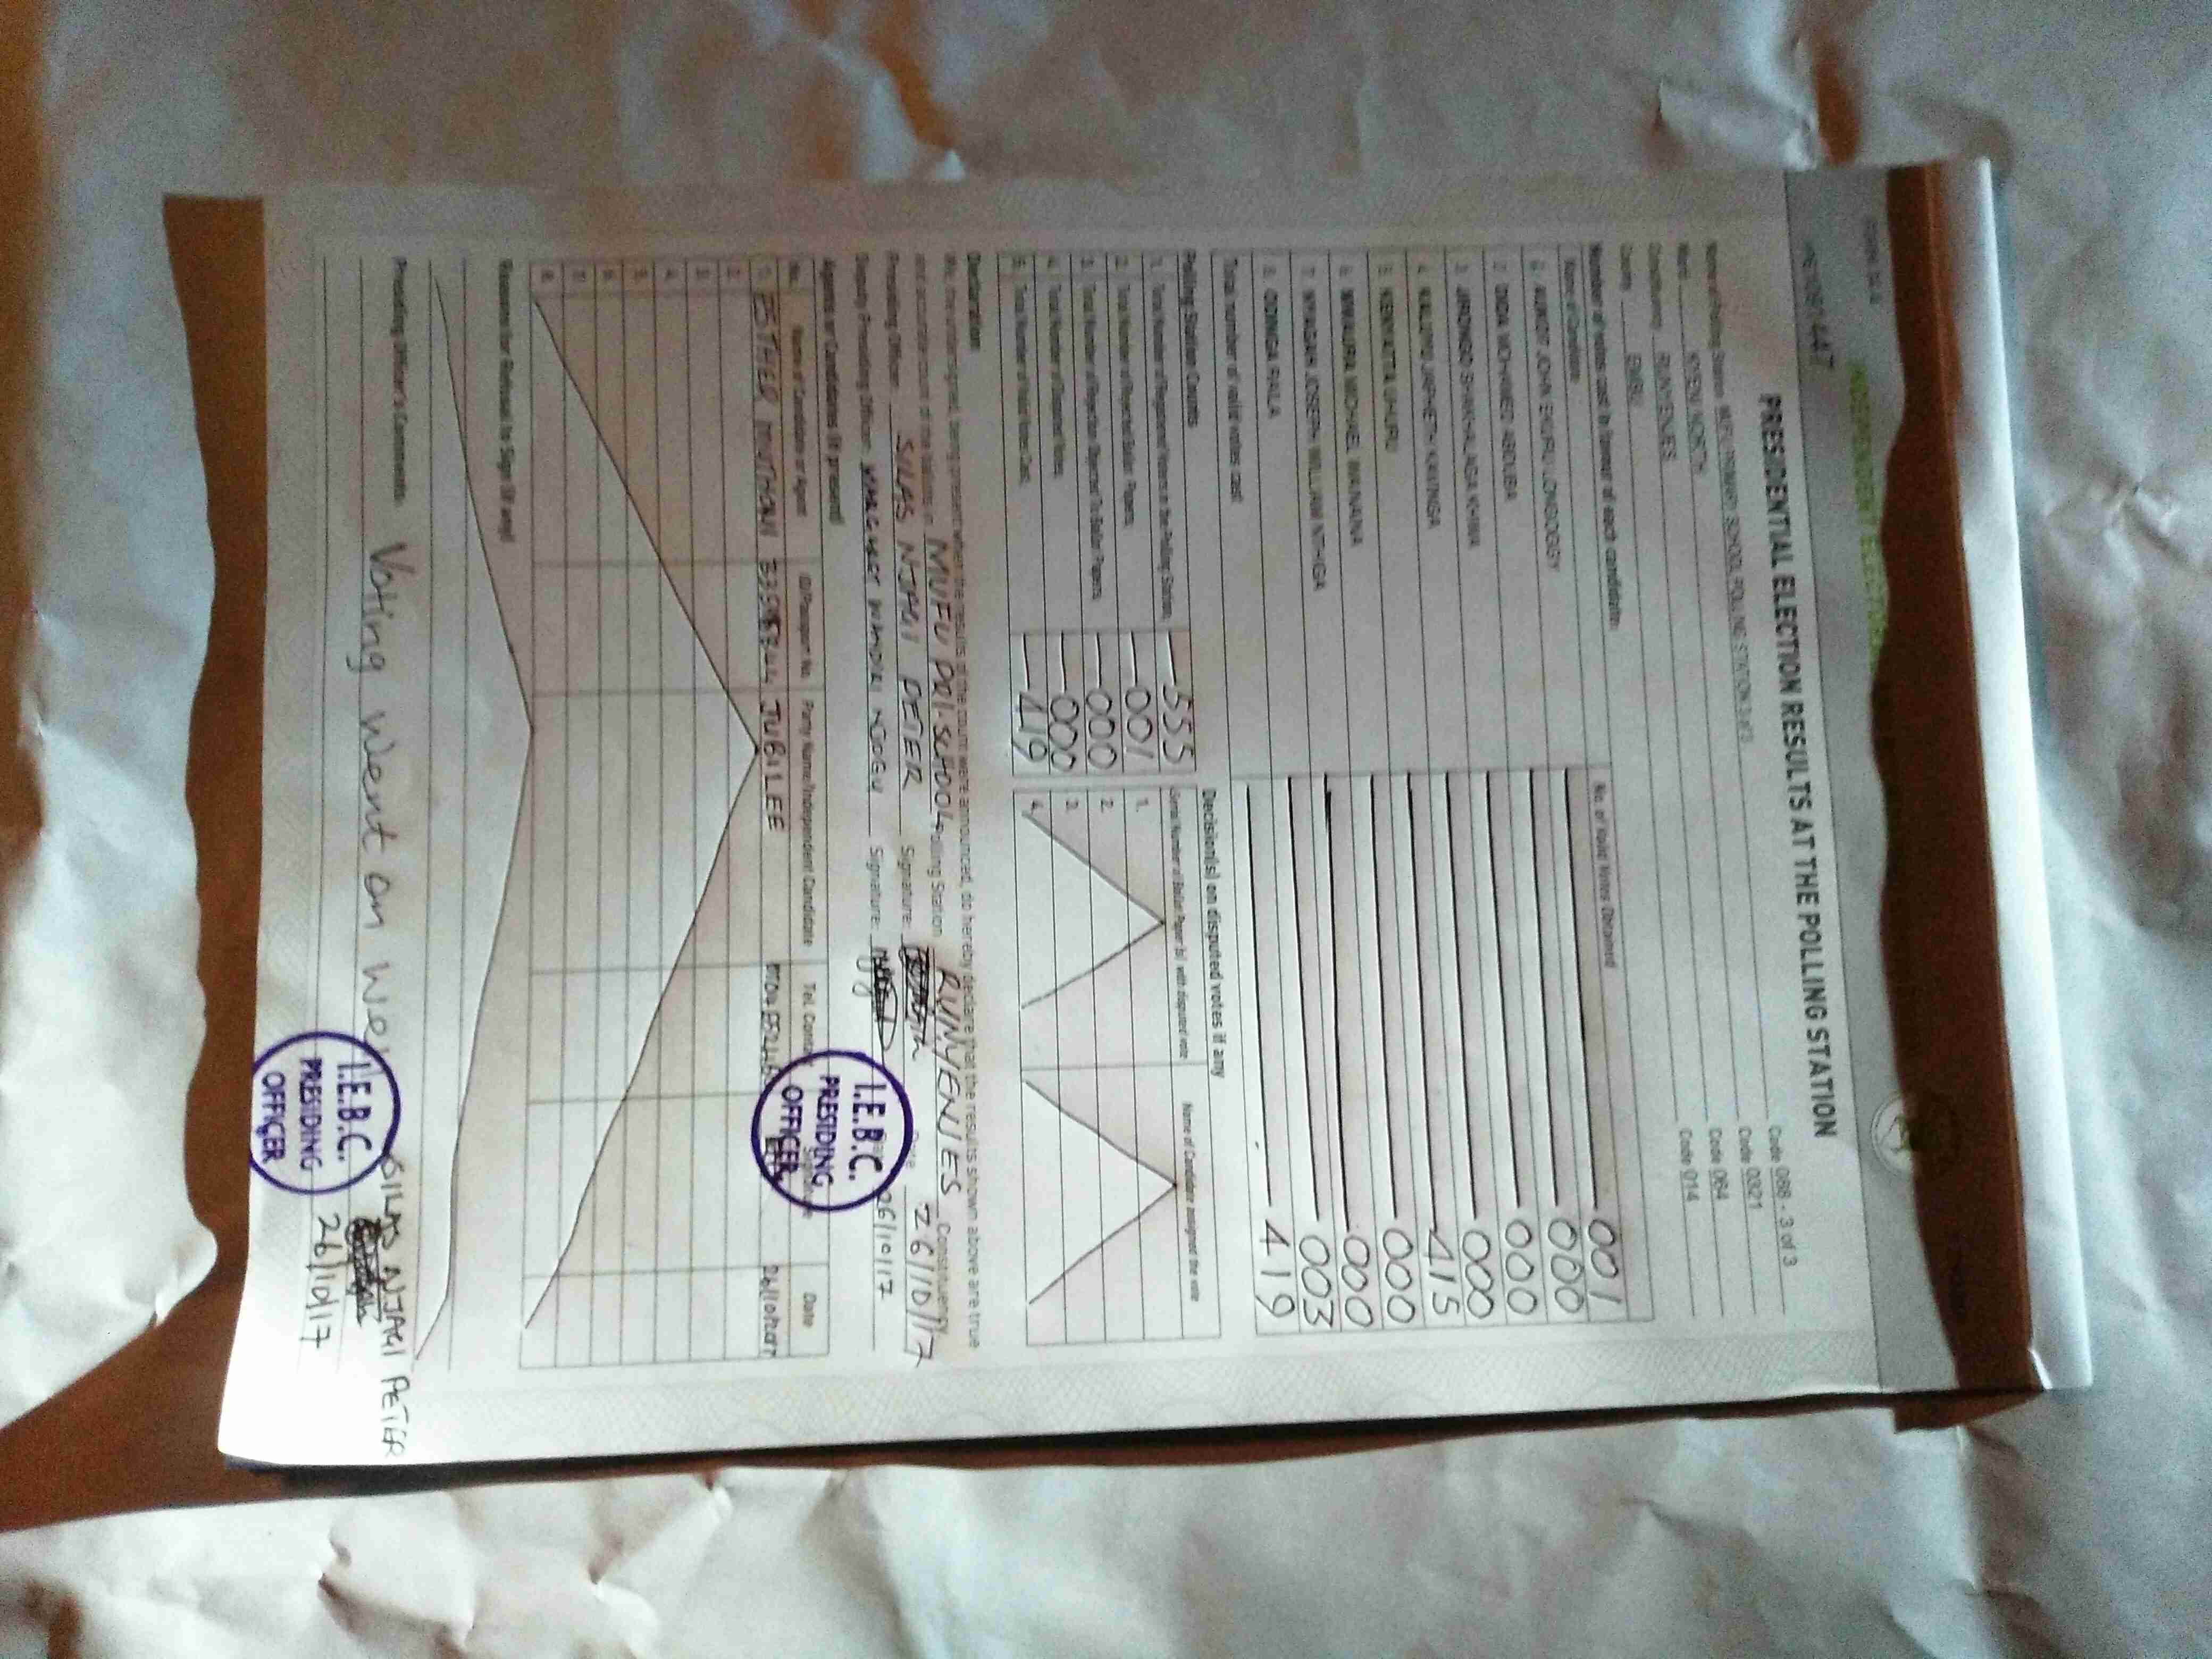 PRESIDENTIAL ELECTION RESULTS AT THE POLLING STATION
Name of Polling Station MUFU PRIMARY SCHOOL POLLING STATION 3 of 3 Code 088 - 3 of 3
Ward KYENI NORTH Code 0321
Constituency RUNYENJES Code 064
County EMBU Code 014
Number of votes cast in favour of each candidate
Name of Candidate No. of Valid Votes Obtained
1. AUKOT JOHN EKURU LONGOGGY 001
2. DIDA MOHAMED ABDUBA 000
3. JIRONGO SHAKHALAGA KHWA 000
4. KALUYU JAPHETH KAVINGA 000
5. KENYATTA UHURU 415
6. MWAURA MICHAEL WAINAINA 000
7. NYAGAH JOSEPH WILLIAM NTHIGA 000
8. ODINGA RAILA 003
Total number of valid votes cast 419
Polling Station Counts
1. Total Number of Registered Voters in the Polling Station 555
2. Total Number of Rejected Ballot Papers 001
3. Total Number of Rejection Objected To Ballot Papers 000
4. Total Number of Disputed Votes 000
5. Total Number of Valid Votes Cast 419
Decision(s) on disputed votes if any
Serial Number of Ballot Paper (s) with disputed vote Name of Candidate assigned the vote
1.
2.
3.
4.
Declaration
We, the undersigned, being present when the results of the count were announced, do hereby declare that the results shown above are true
and accurate count of the ballots in MUFU PRI. SCHOOL Polling Station RUNYENJES Constituency
Presiding Officer: SILAS NJAGI PETER Signature: Date 26/10/17
Deputy Presiding Officer: NJOGU Signature: 26/10/17
Agents or Candidates (if present)
No. Name of Candidate or Agent ID/Passport No. Party Name/Independent Candidate Tel. Contact Signature Date
1. ESTHER MUTHONI JUBILEE 26/10/2017
2.
3.
4.
5.
6.
7.
8.
I.E.B.C.
PRESIDING
OFFICER
Reasons for Refusal to Sign (if any)
Presiding Officer's Comments: Voting went on well SILAS NJAGI PETER
26/10/17
I.E.B.C.
PRESIDING
OFFICER